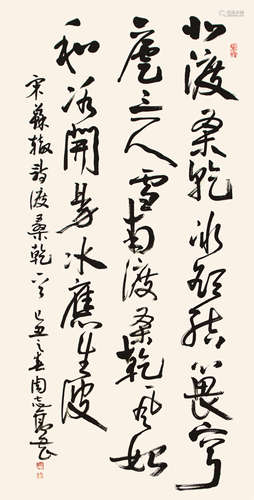 北渡桑乾冰欲结心畏穹
庐三人雪南渡桑乾风始
和冰開易水應生波
宋蘇轍詩渡桑乾一首 己丑之春周志高书